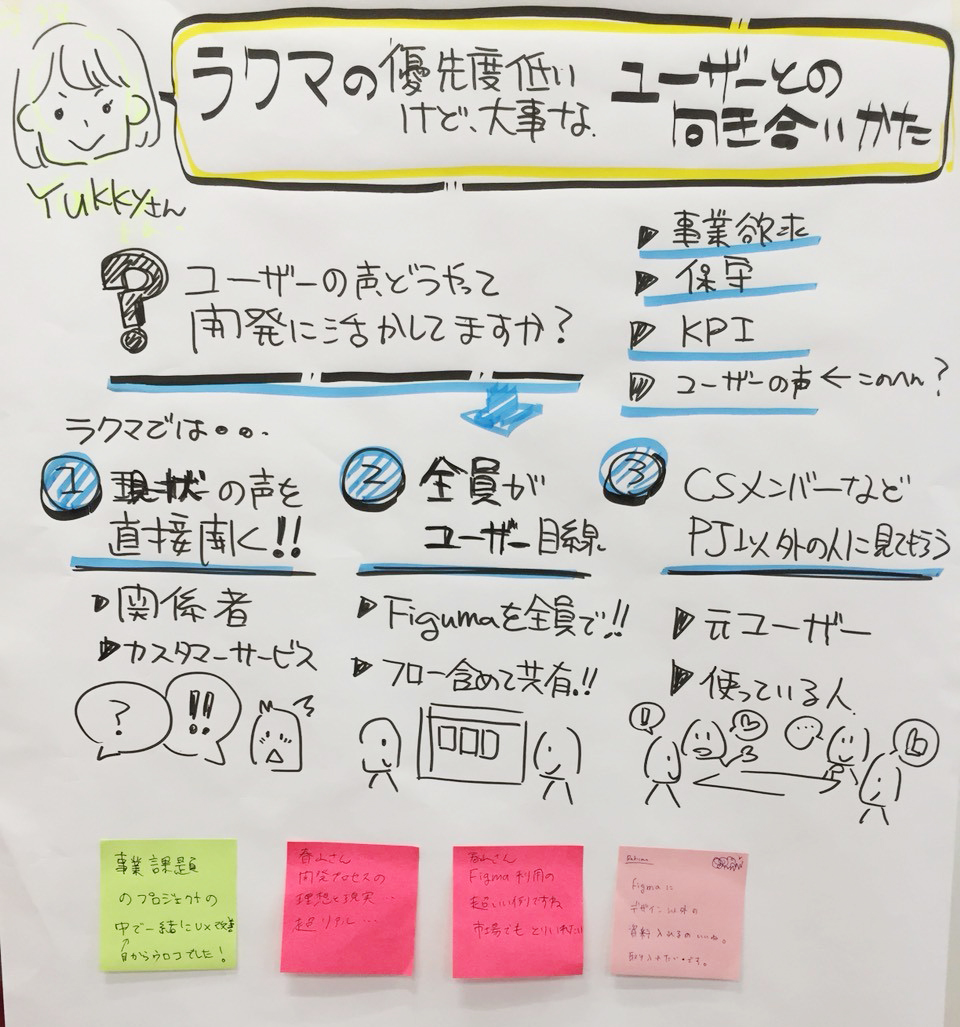 ラクマの優先度低い
けど、大事な
ユーザーとの
向き合いかた
Yukkyさん
?
ユーザーの声どうやって
開発に活かしてますか?
事業欲求
保守
KPI
ユーザーの声 ← このへん?
ラクマでは・・・
1
の声を
直接聞く!!
関係者
カスタマーサービス
? !!
2 全員が
ユーザー目線
Figumaを全員で!!
フロー含めて共有!!
3 CSメンバーなど
PJ以外の人に見てもらう
元ユーザー
使っている人
!
事業課題
のプロジェクトの
中で一緒にUX改善
目からウロコでした!
香山さん
開発プロセスの
理想と現実…
超リアル…
香山さん
Figma利用の
超いい例ですね
市場でもとりいれたい
Figmaに
デザイン以外の
資料入れるのいいね。
取り入れたいです。